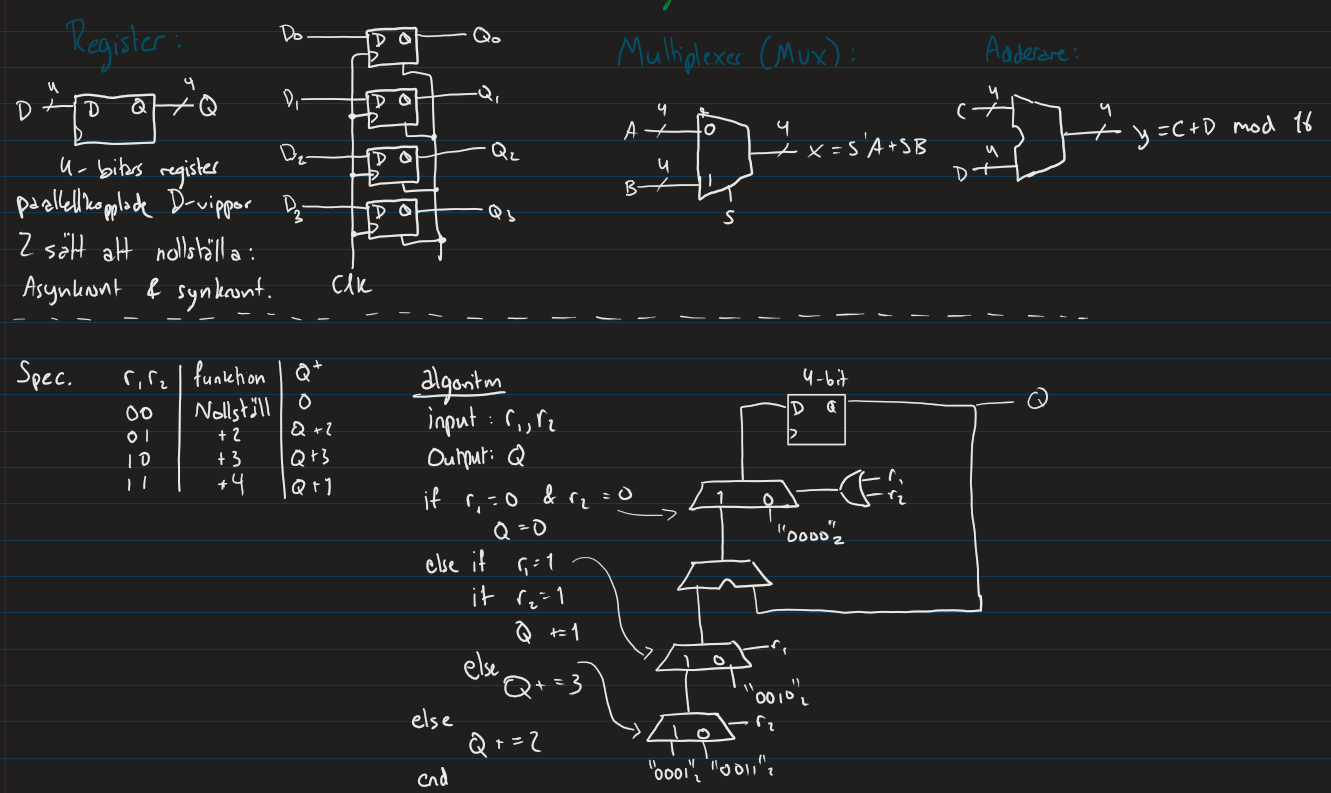 Register:
D 4 D Q 4 Q
4-bitars register
parallellkopplade D-vippor
2 sätt att nollställa:
Asynkront & synkront.
D0 D Q Q0
D1 D Q Q1
D2 D Q Q2
D3 D Q Q3
Clk
Multiplexer (Mux):
A 4 0
B 4 1
S
4 x = S'A+SB
Adderare:
C 4
D 4
4 y = C+D mod 16
Spec.
r1 r2 funktion Q+
00 Nollställ 0
01 +2 Q+2
10 +3 Q+3
11 +4 Q+1
algoritm
input: r1, r2
Output: Q
if r1=0 & r2=0
Q=0
else if r1=1
if r2=1
Q +=1
else
Q+=3
else
Q+=2
end
4-bit
D Q Q
1 0 r1
r2
"0000"2
1 0 r1
"0010"2
1 0 r2
"0001"2 "0011"2